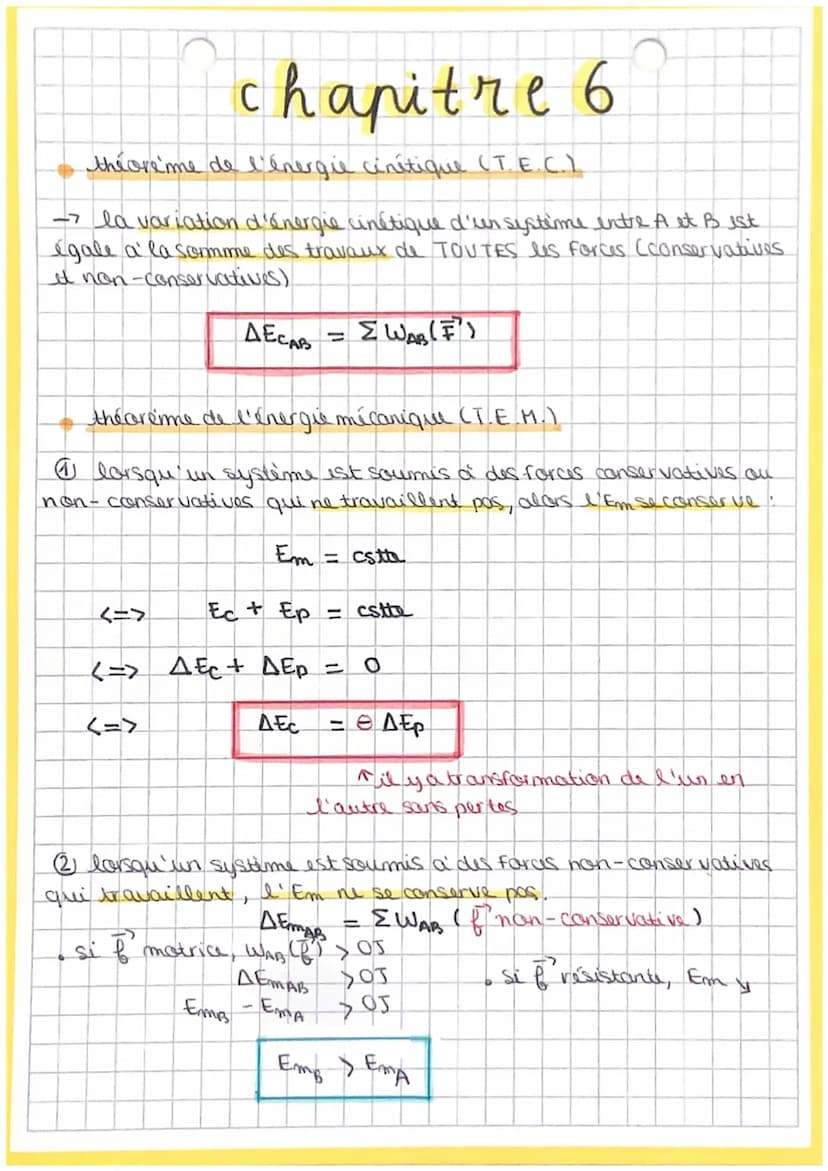 chapitre 6
théorème de l'énergie cinétique (T.E.C.)
→ la variation d'énergie cinétique d'un système entre A et B est
égale à la somme des travaux de TOUTES les forces (conservatives
et non-conservatives)
ΔEc_AB = Σ W_AB(F⃗)
théorème de l'énergie mécanique (T.E.M.)
① lorsqu'un système est soumis à des forces conservatives ou
non-conservatives qui ne travaillent pas, alors l'Em se conserve :
Em = cstte
<=> Ec + Ep = cstte
<=> ΔEc + ΔEp = 0
<=> ΔEc = ⊖ ΔEp
↑ il y a transformation de l'un en
l'autre sans pertes
② lorsqu'un système est soumis à des forces non-conservatives
qui travaillent, l'Em ne se conserve pas.
ΔEm_AB = Σ W_AB (f⃗ non-conservative)
• si f⃗ motrice, W_AB(f⃗) > 0J
ΔEm_AB > 0J • si f⃗ résistante, Em ↘
Em_B - Em_A > 0J
Em_B > Em_A